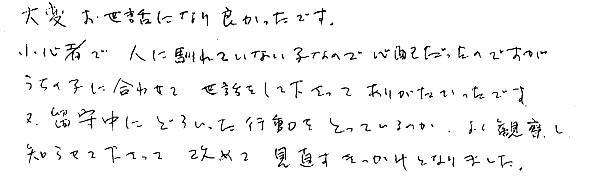 大変お世話になり良かったです。
小心者で人に馴れていない子なので心配だったのですが
うちの子に合わせて世話をして下さってありがたいったです
又、留守中にどういった行動をとっているのか、よく観察し
知らせて下さって改めて見直すきっかけとなりました。